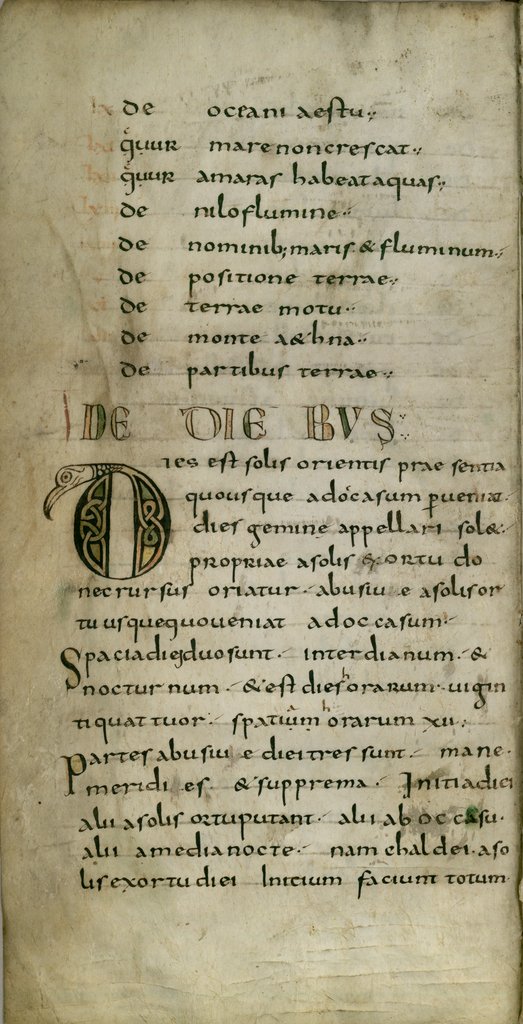 de oceani aestu
quur mare non crescat
quur amaras habeat aquas
de nilo flumine
de nominib; maris & fluminum
de positione terrae
de terrae motu
de monte a&hna
de partibus terrae
I DE DIE BUS
Dies est solis orientis prae sentia
quousque ad occasum perueniat
dies gemine appellari sol&
propriae a solis exortu do
nec rursus oriatur abusiu e a solis or
tu usque quo ueniat ad occasum
Spacia diei duo sunt inter dianum &
noctur num & est dies horarum uigin
ti quat tuor spatium horarum xii
Partes abusiu e diei tres sunt mane
meridi es & supprema Initia diei
alii a solis ortu putant alii ab oc casu
alii a media nocte nam chal dei a so
lis exortu diei Inicium faciunt totum